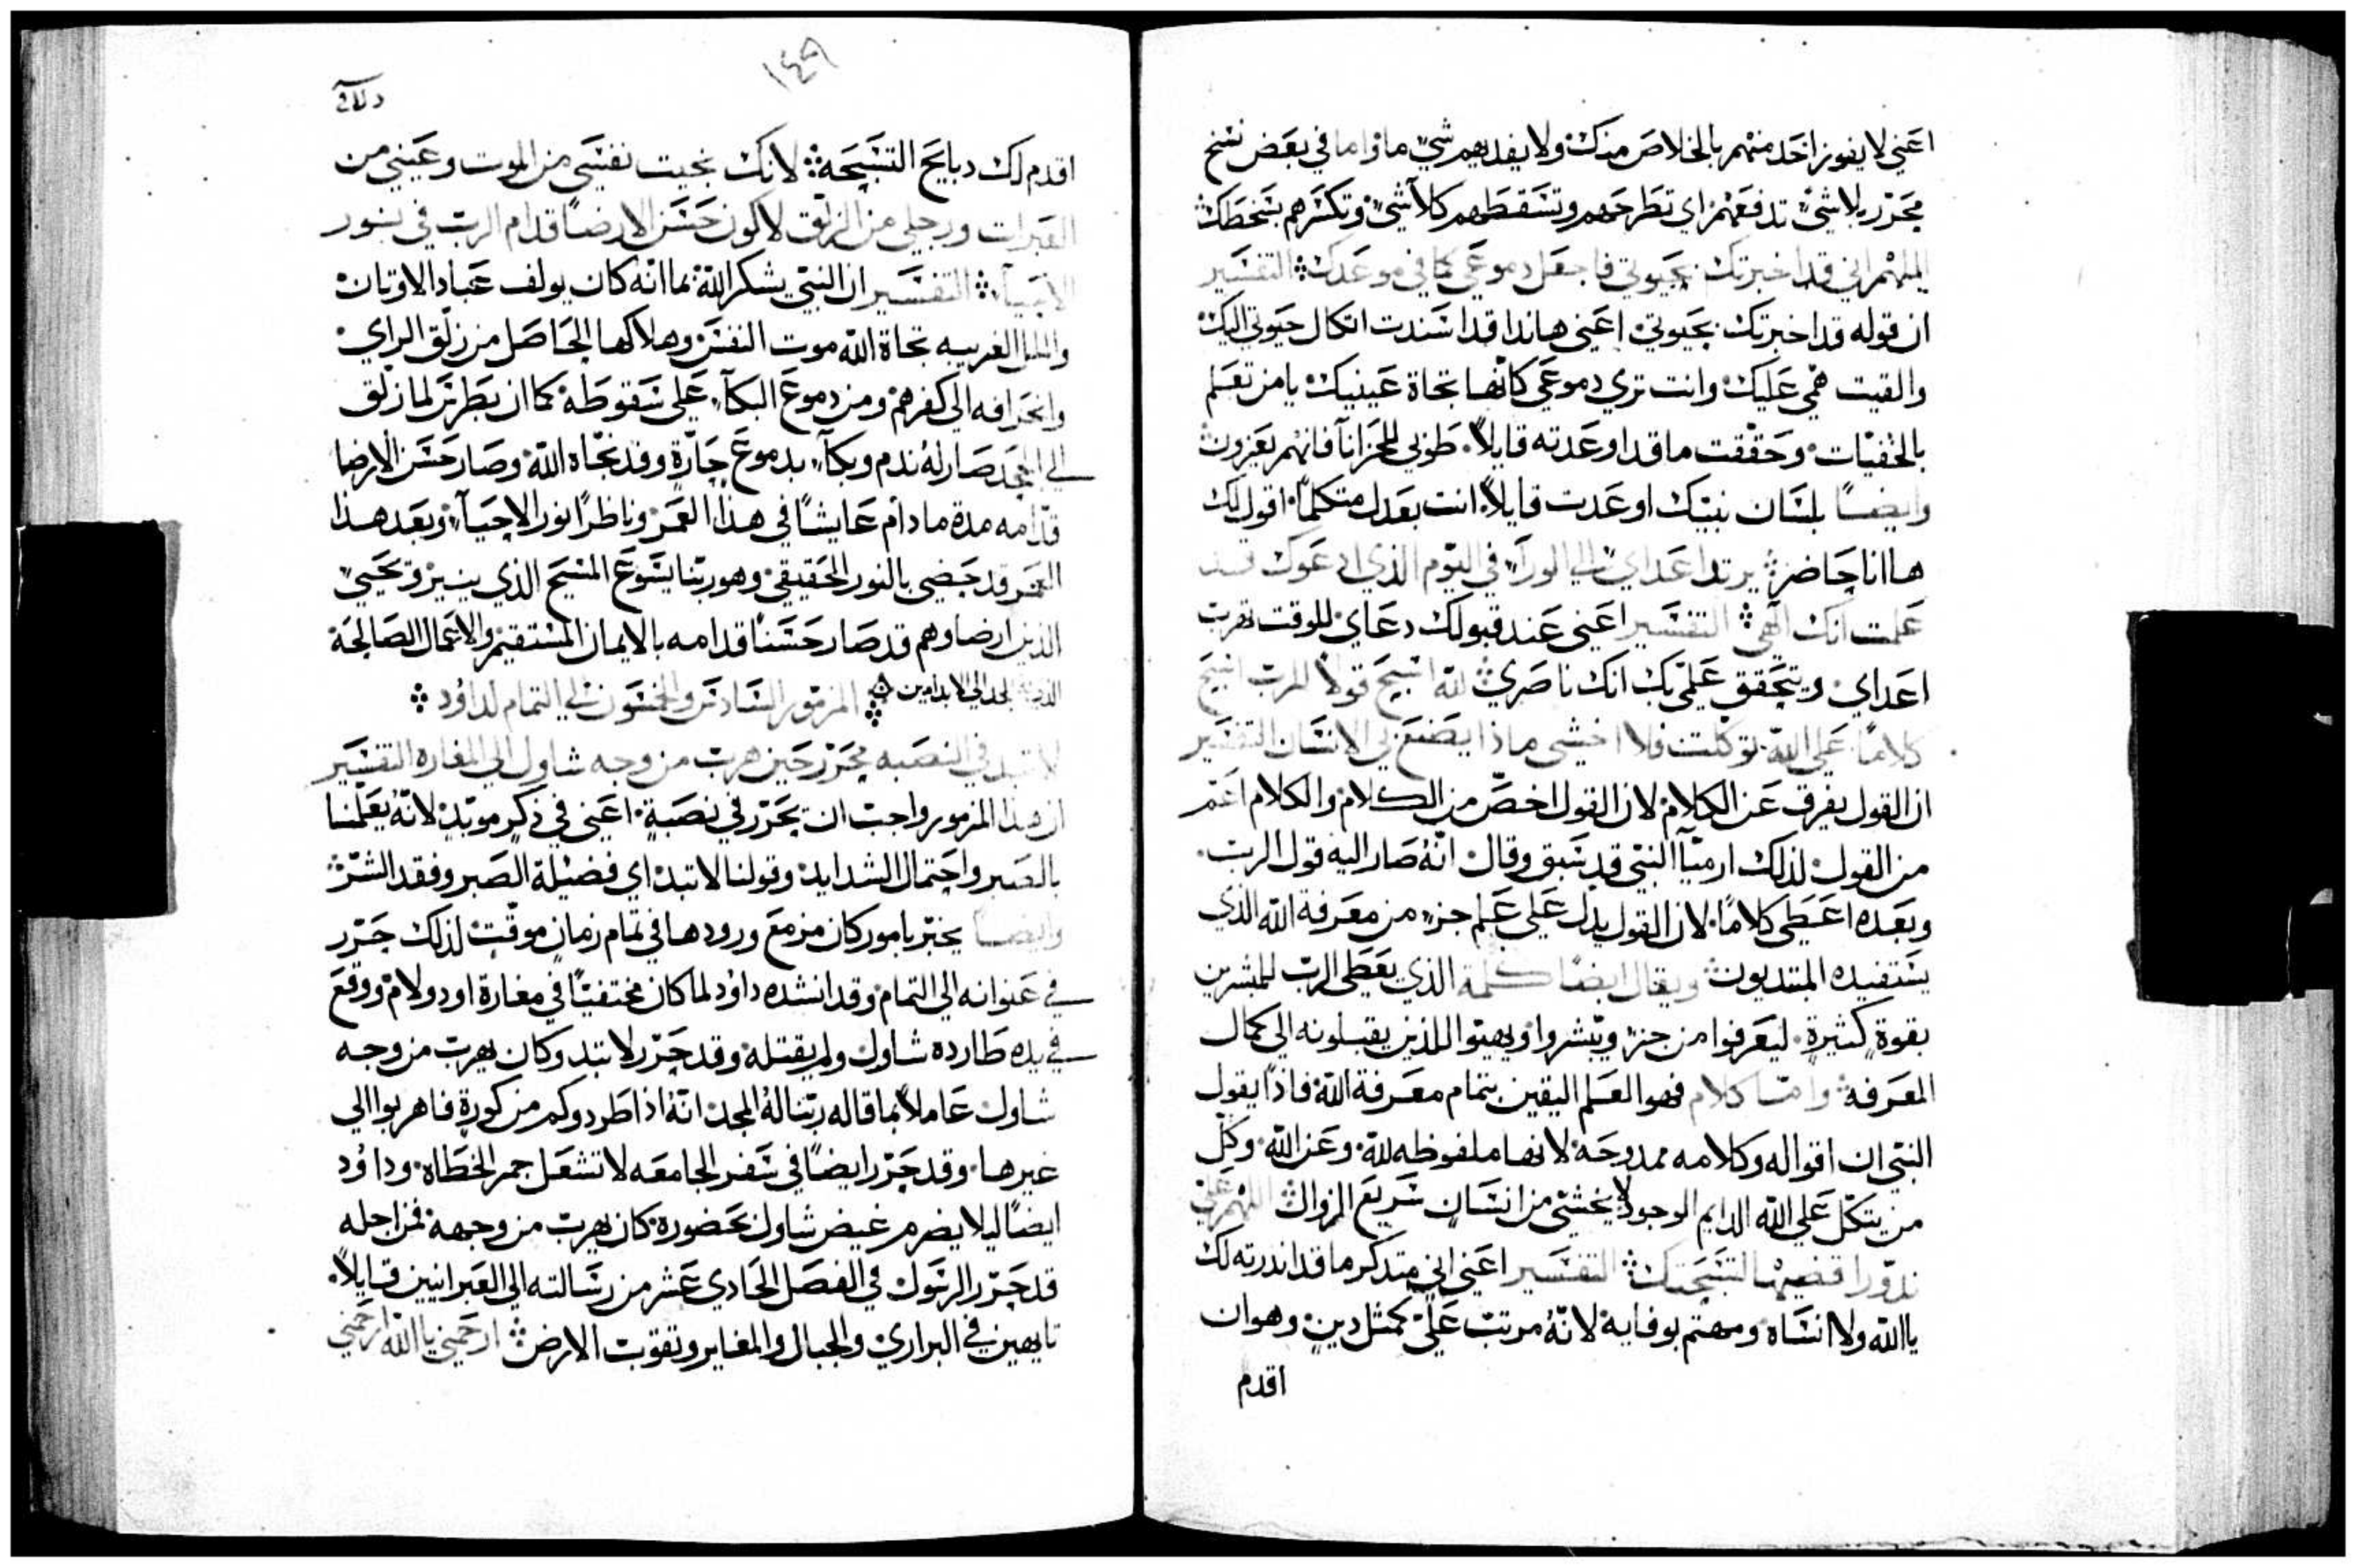 اعني لا يفوز احد منهم بالخلاص منك ولا يفديهم شي ما واما في بعض نسخ
محرّر بلا شيً تدفعهم اي تطرحهم وتسقطهم كلا شيً وتكسرهم بسخطك
اللهم اني قد اخبرتك بحيوتي فاجعل دموعي كما في موعدك ܀ التفسير
ان قوله قد اخبرتك بحيوتي اعني هانذا قد اسندت اتكال حيوتي اليك
والقيت همّي عليك وانت تري دموعي كانها تجاة عينيك يا من تعلم
بالخفيّات وحقّقت ما قد اوعدته قايلاً طوبي للحزانآ فانهم يعزون
وايضًا بلسان نبيّك اوعدت قايلاً انت بعدك متكلمًا اقول لك
ها انا حاضر يرتد اعداي الي الورآء في اليوم الذي ادعوك قد
علمت انك الهي ܀ التفسير اعني عند قبولك دعاي للوقت تهرب
اعداي ويتحقق علمي بك انك ناصري لله اسبح قولاً للرب اسبح
كلامًا علي الله توكلت فلا اخشي ماذا يصنع بي الانسان التفسير
ان القول يفرق عن الكلام لان القول اخصّ من الكلام والكلام اعمّ
من القول لذلك ارميآ النبي قد سبق وقال انّهُ صار اليه قول الرب
وبعده اعطي كلامًا لان القول يدل علي علم جزء من معرفة الله الذي
يستفيده المبتديون ويقال ايضًا كلمة الذي يعطي الرب للمبشرين
بقوة كثيرة ليعرفوا من جزء ويبشروا ويهيئوا للذين يقبلونه الي كمال
المعرفة وامّا كلام فهو العلم اليقين بتمام معرفة الله فاذًا يقول
النبي ان اقواله وكلامه ممدوحة لانها ملفوظه لله وعن الله وكل
من يتكّل علي الله الدايم الوجود لا يخشي من انسان سريع الزوال اللهم علي
ندورًا اقضيها لتسبحتك ܀ التفسير اعني اني متدكر ما قد اندرته لك
يا الله ولا انساه ومهتم بوفايه لانّهُ مرتب عليّ كمثل دين وهو ان
اقدم
١٤٩
اقدم لك دبايح التسبيحة ܀ لانك نجيت نفسي من الموت وعيني من
العبرات ورجلي من الزلق لاكون حسن الارضا قدام الرب في نور
الاحيآء ܀ التفسير ان النبي يشكر الله بما انّه كان يولف عباد الاوتان
والملل الغريبه نجاة الله موت النفس وهلاكها الحاصل من زلّق الراي
وانحرافه الي كفرهم ومن دموع البكآء علي سقوطه كما ان بطرس لما زلق
الي الجحد صار له ندم وبكآء بدموع حارّة وقد نجّاه الله وصار حسن الارضا
قدّامه مدة ما دام عايشًا في هذا العمر وناظرًا نور الاحيآء وبعد هذا
العمر قد حضي بالنور الحقيقي وهو ربّنا يسوع المسيح الذي ينير وتحيي
الذين ارضاوهم قد صار حسنًا قدامه بالايمان المستقيم والاعمال الصالحة
المجد الي الابد امين ܀ المزمور السادس والخمسون الي التمام لداوُد ܀
لا تبد في النصبه محرّر حين هرب من وجه شاول الي المغاره التفسير
ان هذا المزمور واجب ان يحرّر في نصبة اعني في ذكر موبّد لانّه يعلّمنا
بالصبر واحتمال الشدايد وقولنا لا تبد اي فضيلة الصبر وفقد الشرّ
وايضًا يخبّر بامور كان مزمع ورودها في تمام زمان موقّت لذلك حرّر
في عنوانه الي التمام وقد انشده داوُد لما كان مختفيًا في مغارة اودولام ووقع
في يده طارده شاول ولم يقتله وقد حرّر لا تبد وكان يهرب من وجه
شاول عاملاً بما قاله ربّنا لهُ المجد انّهُ اذا طردوكم من كورة فاهربوا الي
غيرها وقد حرّر ايضًا في سفر الجامعه لا تشعل جمر الخطاه وداوُد
ايضًا ليلا يضرم غيض شاول بحضوره كان يهرب من وجهه فمن اجله
قد حرّر الرسول في الفصل الحادي عشر من رسالته الي العبرانيين قايلاً
تايهين في البراري والجبال والمغاير وتقوب الارض ܀ ارحمني يا الله ارحمني